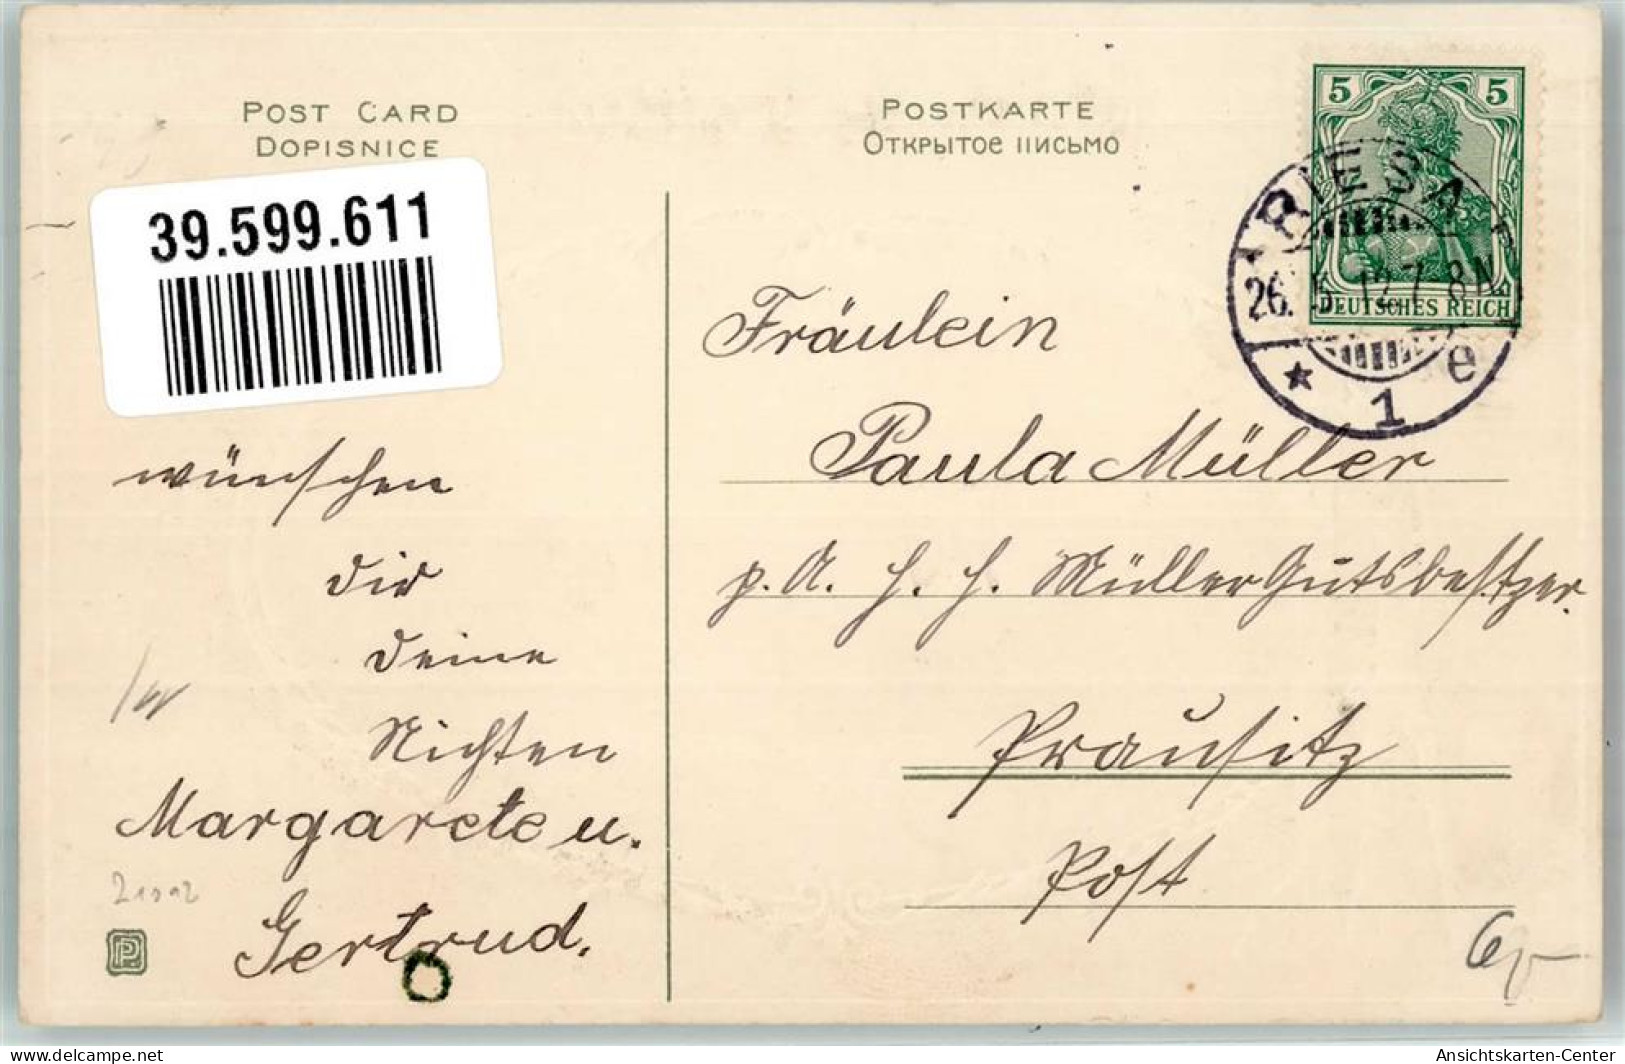 POST CARD
DOPISNICE
POSTKARTE
Открытое письмо
5 5
DEUTSCHES REICH
RIESA
26. 5. 12. 7-8N
* 1 e
39.599.611
wünschen
dir
deine
Nichten
Margarete u.
Gertrud.
Fräulein
Paula Müller
p. A. H. H. Müller Gutsbesitzer.
Prausitz
Post
P
delcampe.net
Ansichtskarten-Center